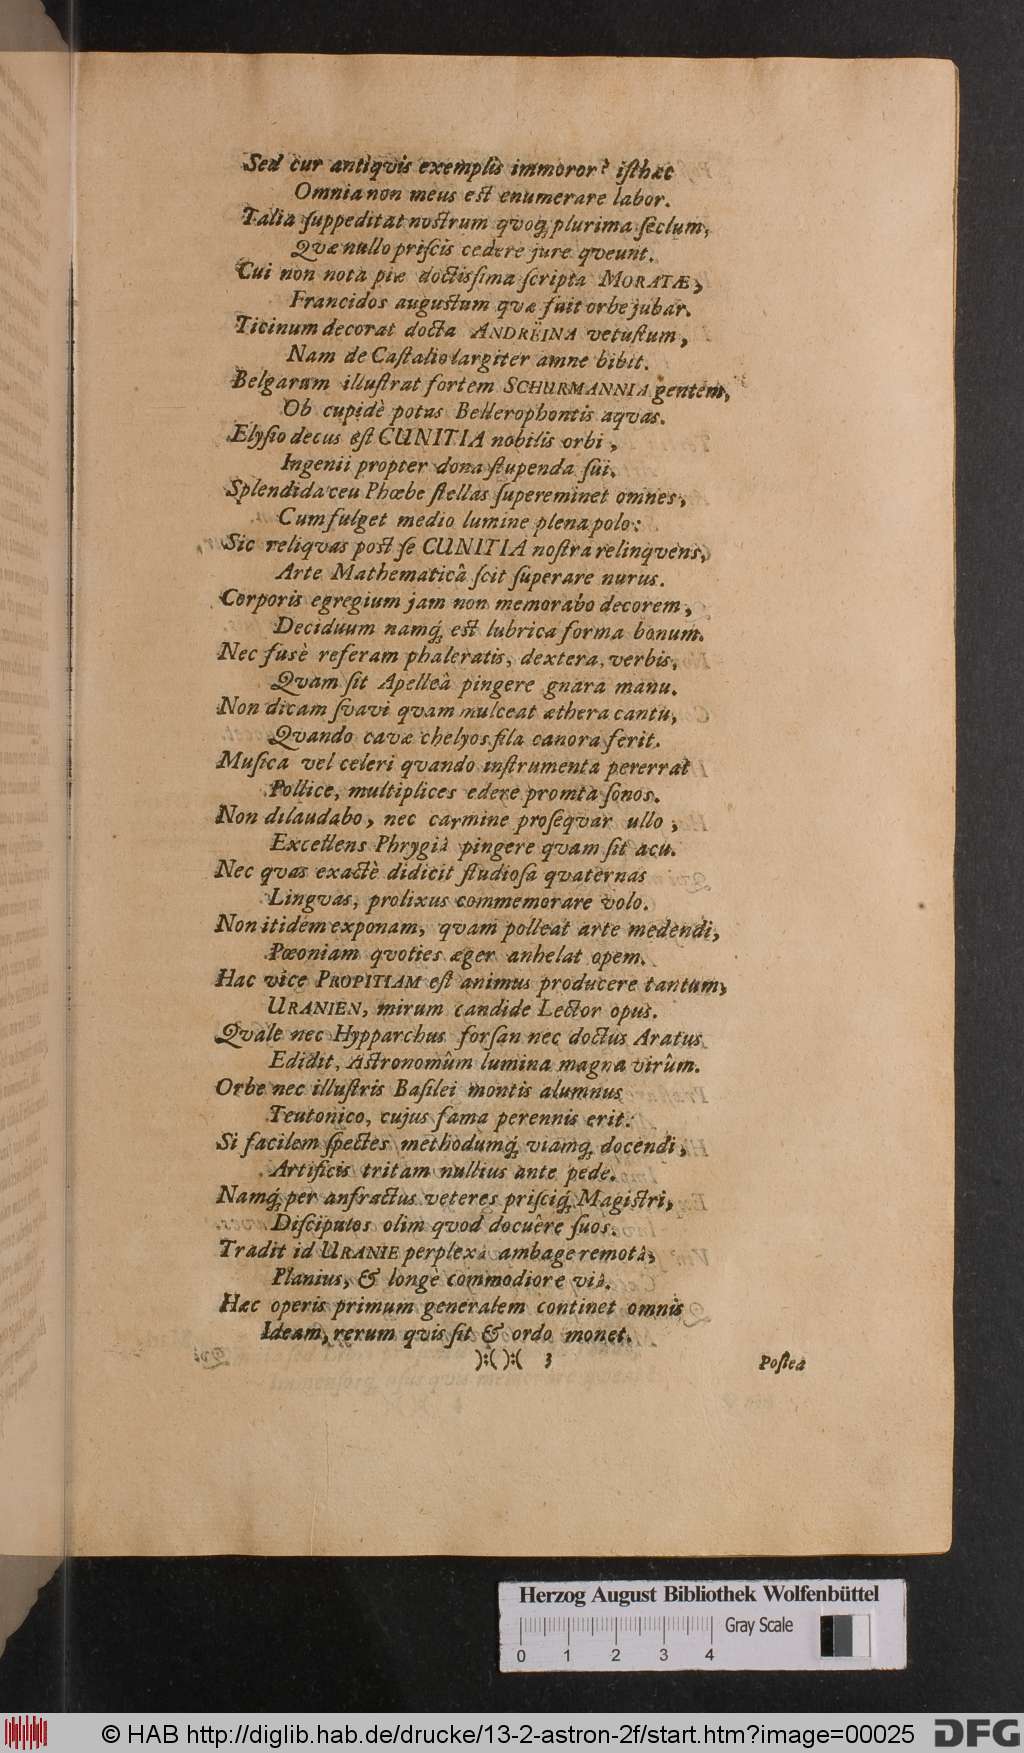 Sed cur antiqvis exemplis immoror? iſthæc
Omnia non meus est enumerare labor.
Talia ſuppeditat nostrum qvoq́; plurima ſeclum,
Qvæ nullo priſcis cedere jure qveunt.
Cui non nota piæ doctiſsima ſcripta MORATÆ,
Francidos augustum qvæ fuit orbe jubar.
Ticinum decorat docta ANDREINA vetuſtum,
Nam de Caſtalio largiter amne bibit.
Belgarum illuſtrat fortem SCHURMANNIA gentem,
Ob cupidè potas Bellerophontis aqvas.
Elyſio decus eſt CUNITIA nobilis orbi,
Ingenii propter dona ſtupenda ſui.
Splendida ceu Phœbe ſtellas ſupereminet omnes,
Cum fulget medio lumine plena polo:
Sic reliqvas post ſe CUNITIA noſtra relinqvens,
Arte Mathematicâ ſcit ſuperare nurus.
Corporis egregium jam non memorabo decorem,
Deciduum namq́; est lubrica forma bonum.
Nec fusè referam phaleratis, dextera, verbis,
Qvam ſit Apelleâ pingere gnara manu.
Non dicam ſvavi qvam mulceat æthera cantu,
Qvando cavæ chelyos fila canora ferit.
Muſica vel celeri qvando inſtrumenta pererrat
Pollice, multiplices edere promta ſonos.
Non dilaudabo, nec carmine proſeqvar ullo,
Excellens Phrygiâ pingere qvam ſit acu.
Nec qvas exactè didicit ſtudioſa qvaternas
Lingvas, prolixus commemorare volo.
Non itidem exponam, qvam polleat arte medendi,
Pœoniam qvoties æger anhelat opem.
Hac vice PROPITIAM eſt animus producere tantum,
URANIEN, mirum candide Lector opus.
Qvale nec Hypparchus forſan nec doctus Aratus
Edidit, Astronomûm lumina magna virûm.
Orbe nec illuſtris Baſilei montis alumnus
Teutonico, cujus fama perennis erit.
Si facilem ſpectes methodumq́; viamq́; docendi,
Artificis tritam nullius ante pede.
Namq́; per anfractus veteres priſciq́; Magiſtri,
Diſcipulos olim qvod docuêre ſuos.
Tradit id URANIE perplexâ ambage remotâ,
Planius, & longè commodiore viâ.
Hæc operis primum generalem continet omnis
Ideam, rerum qvis ſit & ordo monet.
):( ):( 3
Poſtea
Herzog August Bibliothek Wolfenbüttel
Gray Scale
0 1 2 3 4
© HAB http://diglib.hab.de/drucke/13-2-astron-2f/start.htm?image=00025
DFG